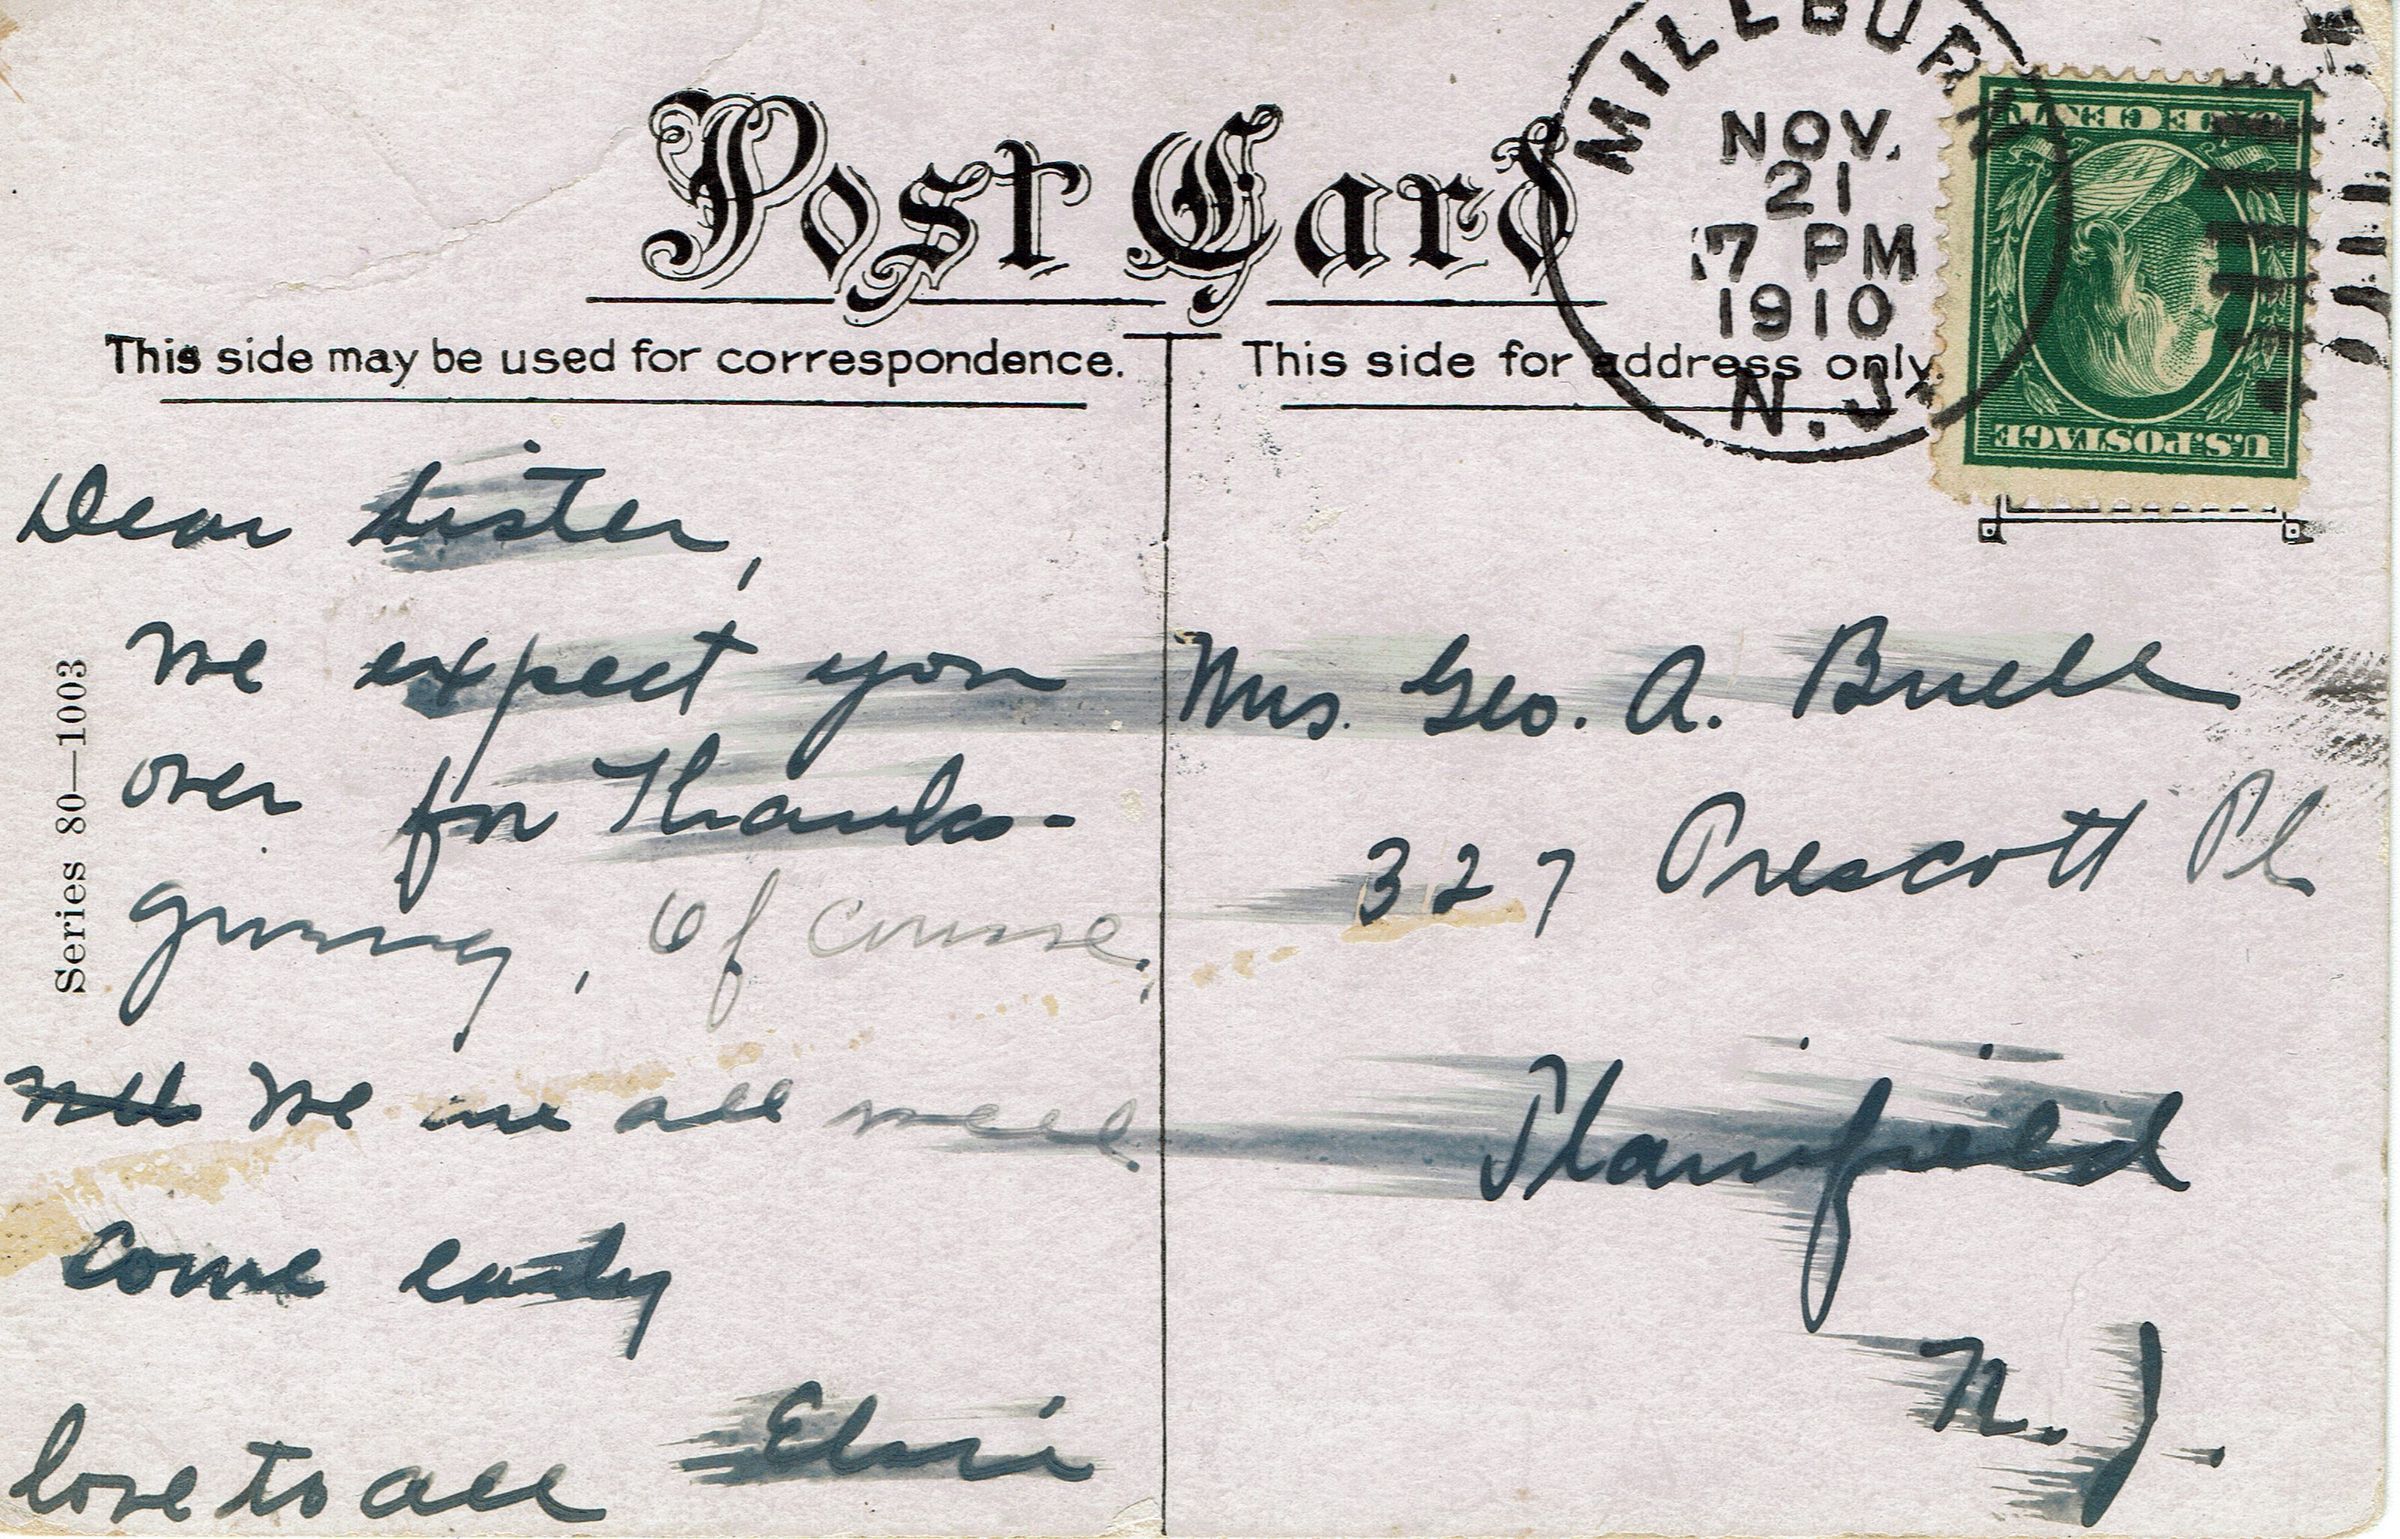 Post Card
This side may be used for correspondence.
This side for address only.
MILLBURN
NOV.
21
7 PM
1910
N.J.
ONE CENT
U.S. POSTAGE
Series 80—1003
Dear Sister,
We expect you
over for Thanks-
giving, Of course.
We are all well
Come early
love to all
Mrs. Geo. A. Buell
327 Prescott Pl
Plainfield
N. J.